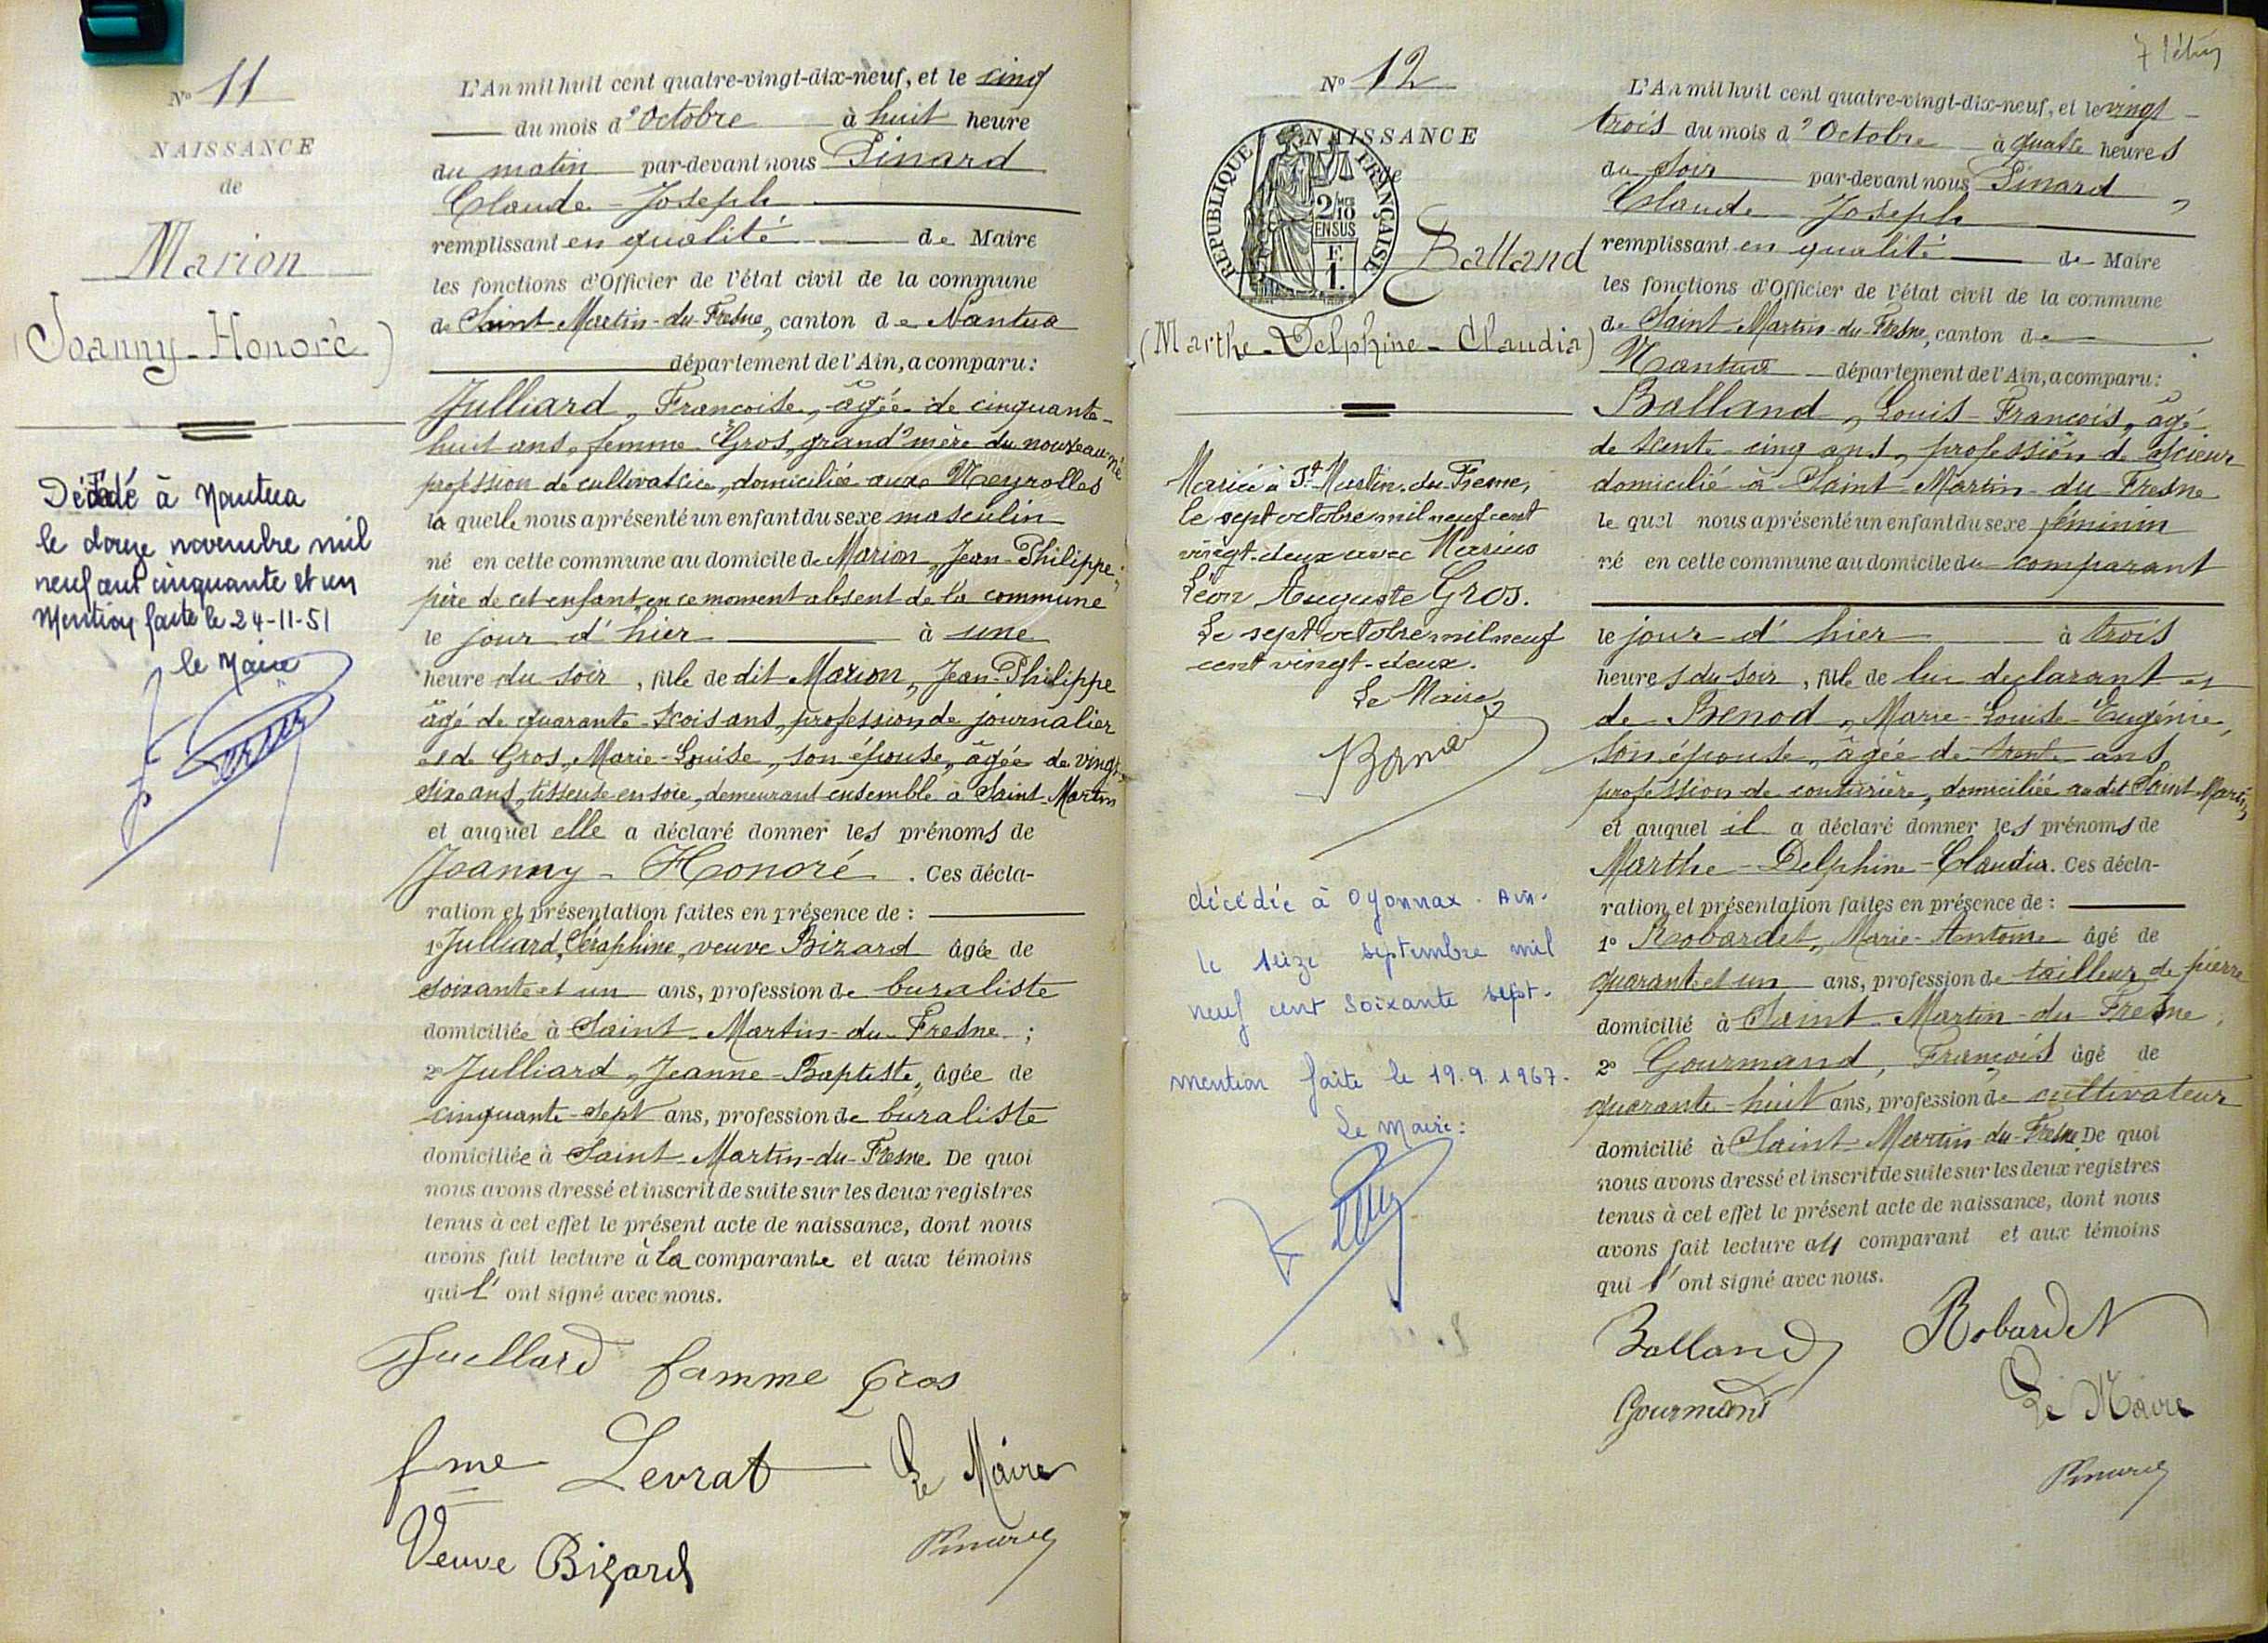 N° 11
NAISSANCE
de
Marion
(Joanny-Honoré)
Décédé à Nantua
le douze novembre mil
neuf cent cinquante et un
Mention faite le 24-11-51
le Maire
L'An mil huit cent quatre-vingt-dix-neuf, et le cinq
du mois d'Octobre à huit heure
du matin par-devant nous Pinard
Claude-Joseph
remplissant en qualité de Maire
les fonctions d'Officier de l'état civil de la commune
de Saint-Martin-du-Fresne, canton de Nantua
département de l'Ain, a comparu:
Julliard, Françoise, âgée de cinquante-
huit ans, femme Gros, grand'mère du nouveau-né
profession de cultivatrice, domiciliée aux Neyrolles
la quelle nous a présenté un enfant du sexe masculin
né en cette commune au domicile de Marion, Jean-Philippe,
père de cet enfant, en ce moment absent de la commune
le jour d'hier à une
heure du soir, fils de dit Marion, Jean-Philippe
âgé de quarante-trois ans, profession de journalier
et de Gros, Marie-Louise, son épouse, âgée de vingt-
six ans, tisseuse en soie, demeurant ensemble à Saint-Martin
et auquel elle a déclaré donner les prénoms de
Joanny-Honoré. Ces décla-
ration et présentation faites en présence de :
1° Julliard, Séraphine, veuve Bizard âgée de
soixante et un ans, profession de buraliste
domiciliée à Saint-Martin-du-Fresne ;
2° Julliard, Jeanne-Baptiste, âgée de
cinquante-sept ans, profession de buraliste
domiciliée à Saint-Martin-du-Fresne. De quoi
nous avons dressé et inscrit de suite sur les deux registres
tenus à cet effet le présent acte de naissance, dont nous
avons fait lecture à la comparante et aux témoins
qui l'ont signé avec nous.
Juellard famme Gros
fme Levrat Le Maire
Veuve Bizard Pinard
7 
N° 12
NAISSANCE
de
REPUBLIQUE FRANÇAISE
2/10 EN SUS
F.
1.
Balland
(Marthe-Delphine-Claudia)
Mariée à St Martin-du-Fresne,
le sept octobre mil neuf cent
vingt-deux avec Marius
Léon Auguste Gros.
Le sept octobre mil neuf
cent vingt-deux.
Le Maire,
décédée à Oyonnax - Ain -
le seize septembre mil
neuf cent soixante sept.
mention faite le 19.9.1967.
Le Maire :
L'An mil huit cent quatre-vingt-dix-neuf, et le vingt-
trois du mois d'Octobre à quatre heures
du soir par-devant nous Pinard,
Claude Joseph
remplissant en qualité de Maire
les fonctions d'Officier de l'état civil de la commune
de Saint Martin-du-Fresne, canton de
Nantua département de l'Ain, a comparu:
Balland, Louis-François, âgé
de trente-cinq ans, profession de scieur
domicilié à Saint-Martin-du-Fresne
le quel nous a présenté un enfant du sexe féminin
né en cette commune au domicile du comparant
le jour d'hier à trois
heures du soir, fille de lui déclarant et
de Benod, Marie-Louise-Eugénie,
son épouse, âgée de trente ans
profession de couturière, domiciliée audit Saint-Martin,
et auquel il a déclaré donner les prénoms de
Marthe-Delphine-Claudia. Ces décla-
ration et présentation faites en présence de :
1° Robardet, Marie-Antoine âgé de
quarante et un ans, profession de tailleur de pierre
domicilié à Saint-Martin-du-Fresne ;
2° Gourmand, François âgé de
quarante-huit ans, profession de cultivateur
domicilié à Saint-Martin-du-Fresne. De quoi
nous avons dressé et inscrit de suite sur les deux registres
tenus à cet effet le présent acte de naissance, dont nous
avons fait lecture au comparant et aux témoins
qui l'ont signé avec nous.
Balland Robardet
Gourmand Le Maire
Pinard